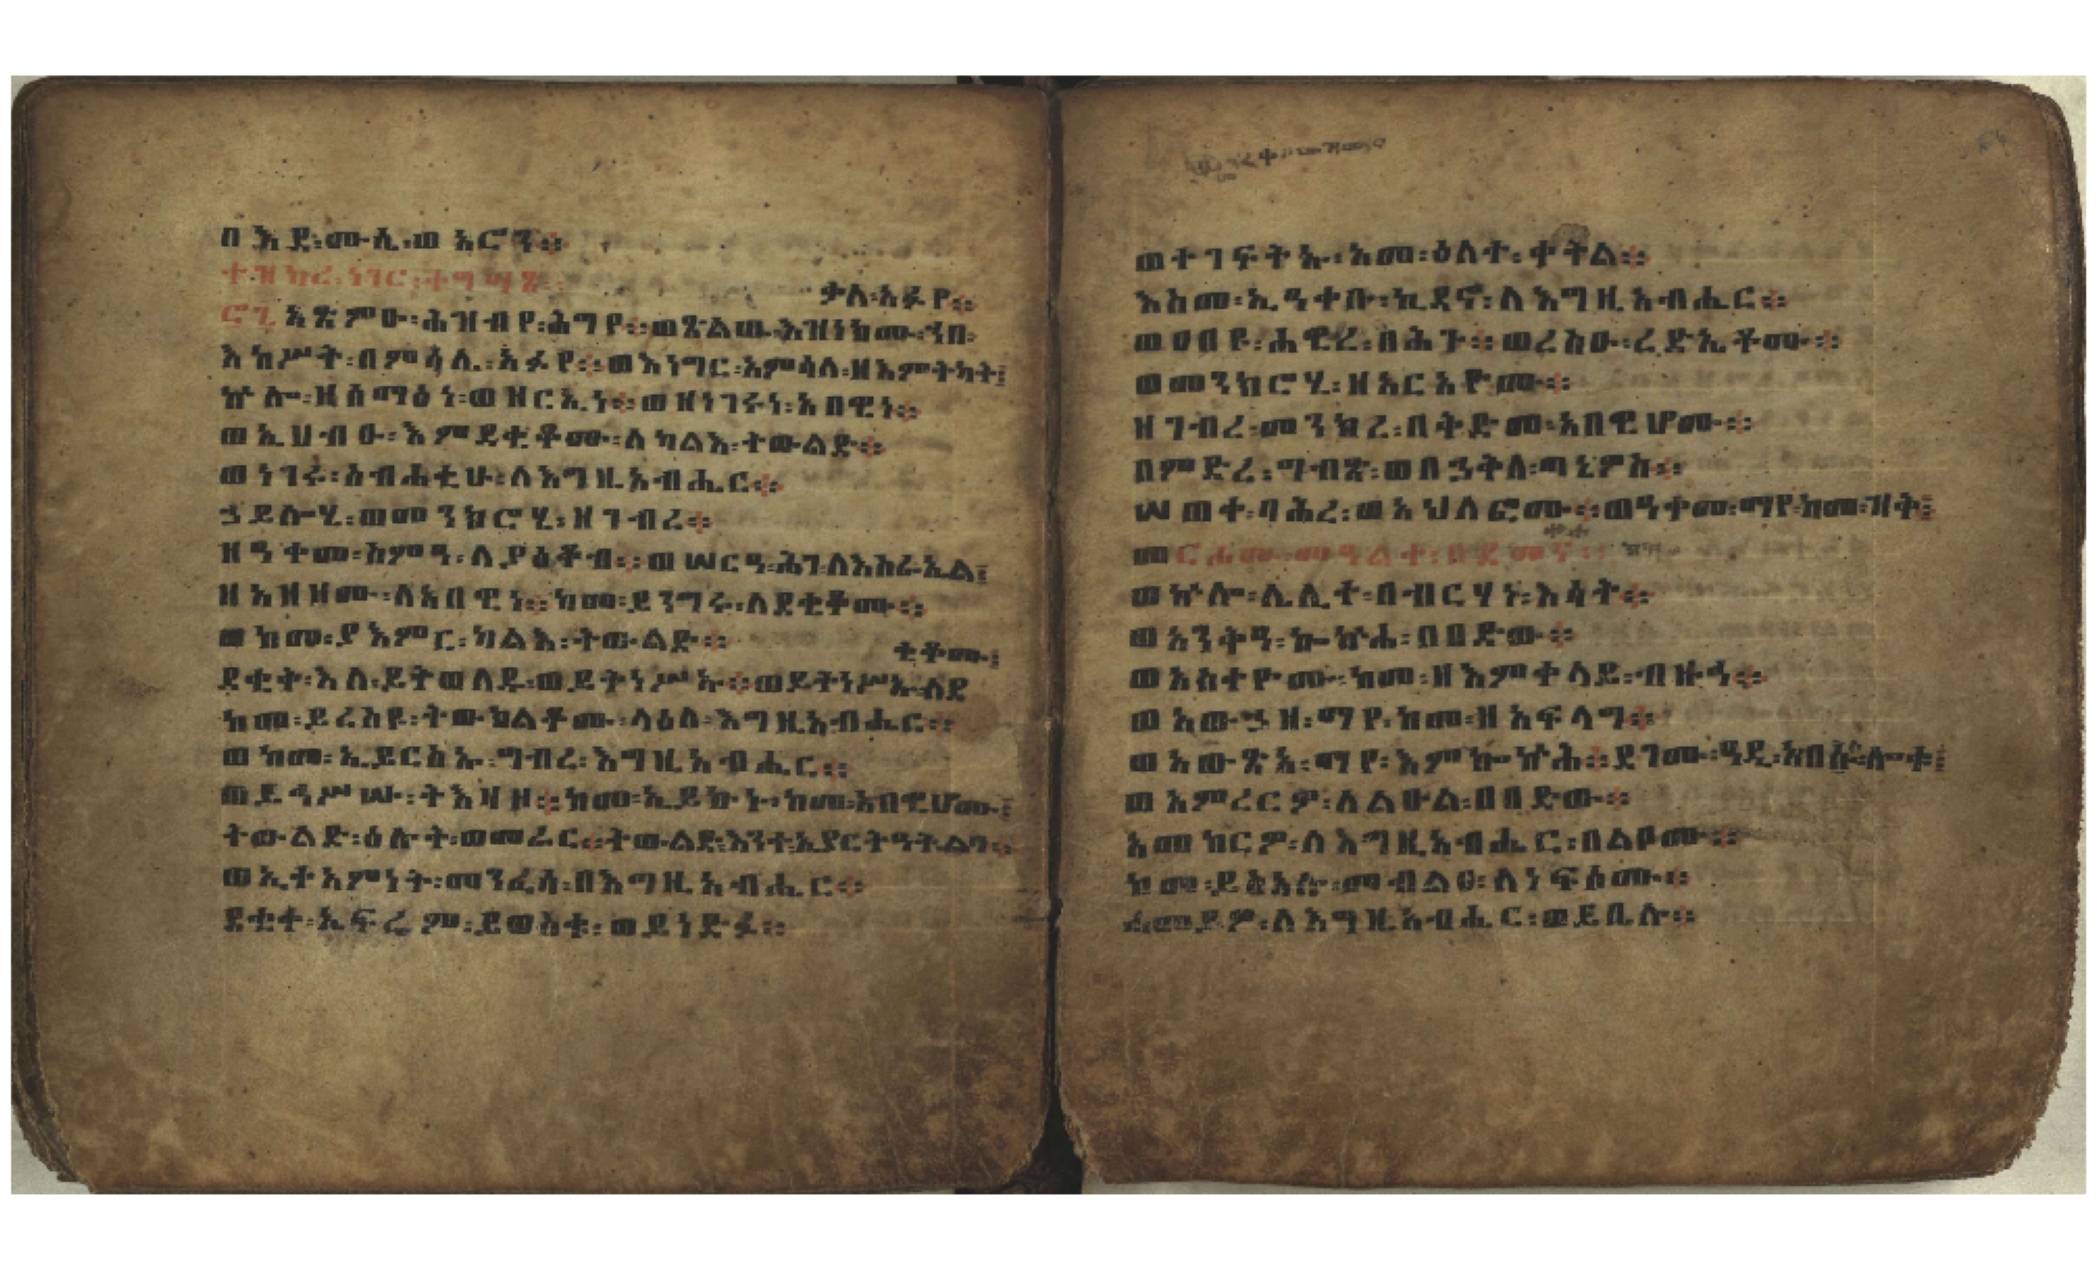 በእደ፡ሙሴ፡ወአሮን።
ተዝካረ፡ነገር፡
ቃለ፡አፉየ።
አጽምዑ፡ሕዝብየ፡ሕግየ።ወጽልዉ፡እዝነክሙ፡ኀበ፡
እከሥት፡በምሳሌ፡አፉየ።ወእነግር፡አምሳለ፡ዘእምትካት፤
ኵሎ፡ዘሰማዕነ፡ወዘርኢነ።ወዘነገሩነ፡አበዊነ።
ወኢኀብኡ፡እምደቂቆሙ፡ለካልእ፡ትውልድ።
ወነገሩ፡ስብሐቲሁ፡ለእግዚአብሔር።
ኃይሎሂ፡ወመንክሮሂ፡ዘገብረ።
ዘዓቀመ፡ስምዓ፡ለያዕቆብ።ወሠርዓ፡ሕገ፡ለእስራኤል፤
ዘአዘዞሙ፡ለአበዊነ።ከመ፡ይንግሩ፡ለደቂቆሙ።
ወከመ፡ያእምር፡ካልእ፡ትውልድ።
ቂቆሙ፤
ደቂቅ፡እለ፡ይትወለዱ፡ወይትነሥኡ።ወይትነሥኡ፡ለደ
ከመ፡ይረስዩ፡ትውክልቶሙ፡ላዕለ፡እግዚአብሔር።
ወከመ፡ኢይርስኡ፡ግብረ፡እግዚአብሔር።
ወይኅሥሡ፡ትእዛዞ።ከመ፡ኢይኩኑ፡ከመ፡አበዊሆሙ፤
ትውልድ፡ዕሉት፡ወመራር።ትውልድ፡እንተ፡ኢያርትዓት፡ልባ።
ወኢተአምነት፡መንፈሳ፡በእግዚአብሔር።
ደቂቀ፡ኤፍሬም፡ይወስቁ፡ወይነድፉ።
ወተገፍትኡ፡አመ፡ዕለተ፡ቀትል።
እስመ፡ኢዓቀቡ፡ኪዳኖ፡ለእግዚአብሔር።
ወዐበዩ፡ሐዊረ፡በሕጉ።ወረስዑ፡ረድኤቶሙ።
ወመንክሮሂ፡ዘአርአዮሙ።
ዘገብረ፡መንክረ፡በቅድመ፡አበዊሆሙ።
በምድረ፡ግብጽ፡ወበኃቅለ፡ጣኔዎስ።
ሠጠቀ፡ባሕረ፡ወአኅለፎሙ።ወዓቀመ፡ማየ፡ከመ፡ዝቅ፤
መርሖሙ፡መዓልተ፡በደመና።
ወኵሎ፡ሌሊተ፡በብርሃነ፡እሳት።
ወአንቅዓ፡ኰኵሐ፡በበድው።
ወአስተዮሙ፡ከመ፡ዘእምቀላይ፡ብዙኅ።
ወአውኃዘ፡ማየ፡ከመ፡ዘአፍላግ።
ወአውጽአ፡ማየ፡እምኰኵሕ።ደገሙ፡ዓዲ፡አበሱ፡ሎቱ፤
ወአምረርዎ፡ለልዑል፡በበድው።
አመከርዎ፡ለእግዚአብሔር፡በልቦሙ።
ከመ፡ይስአሉ፡መብልዐ፡ለነፍሶሙ።
ሐመይዎ፡ለእግዚአብሔር፡ወይቤሉ።